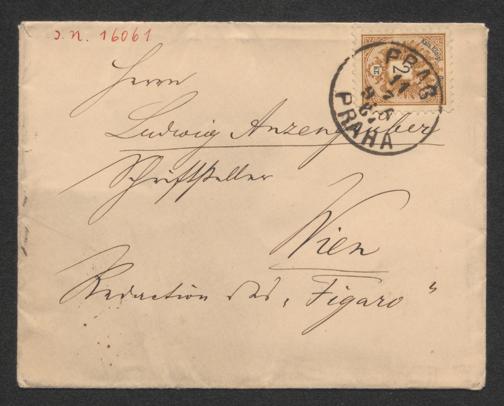 J. N. 16061
PRAG
PRAHA
Herrn
Ludwig Anzengruber
Schriftsteller
Wien
Redaction des „Figaro“